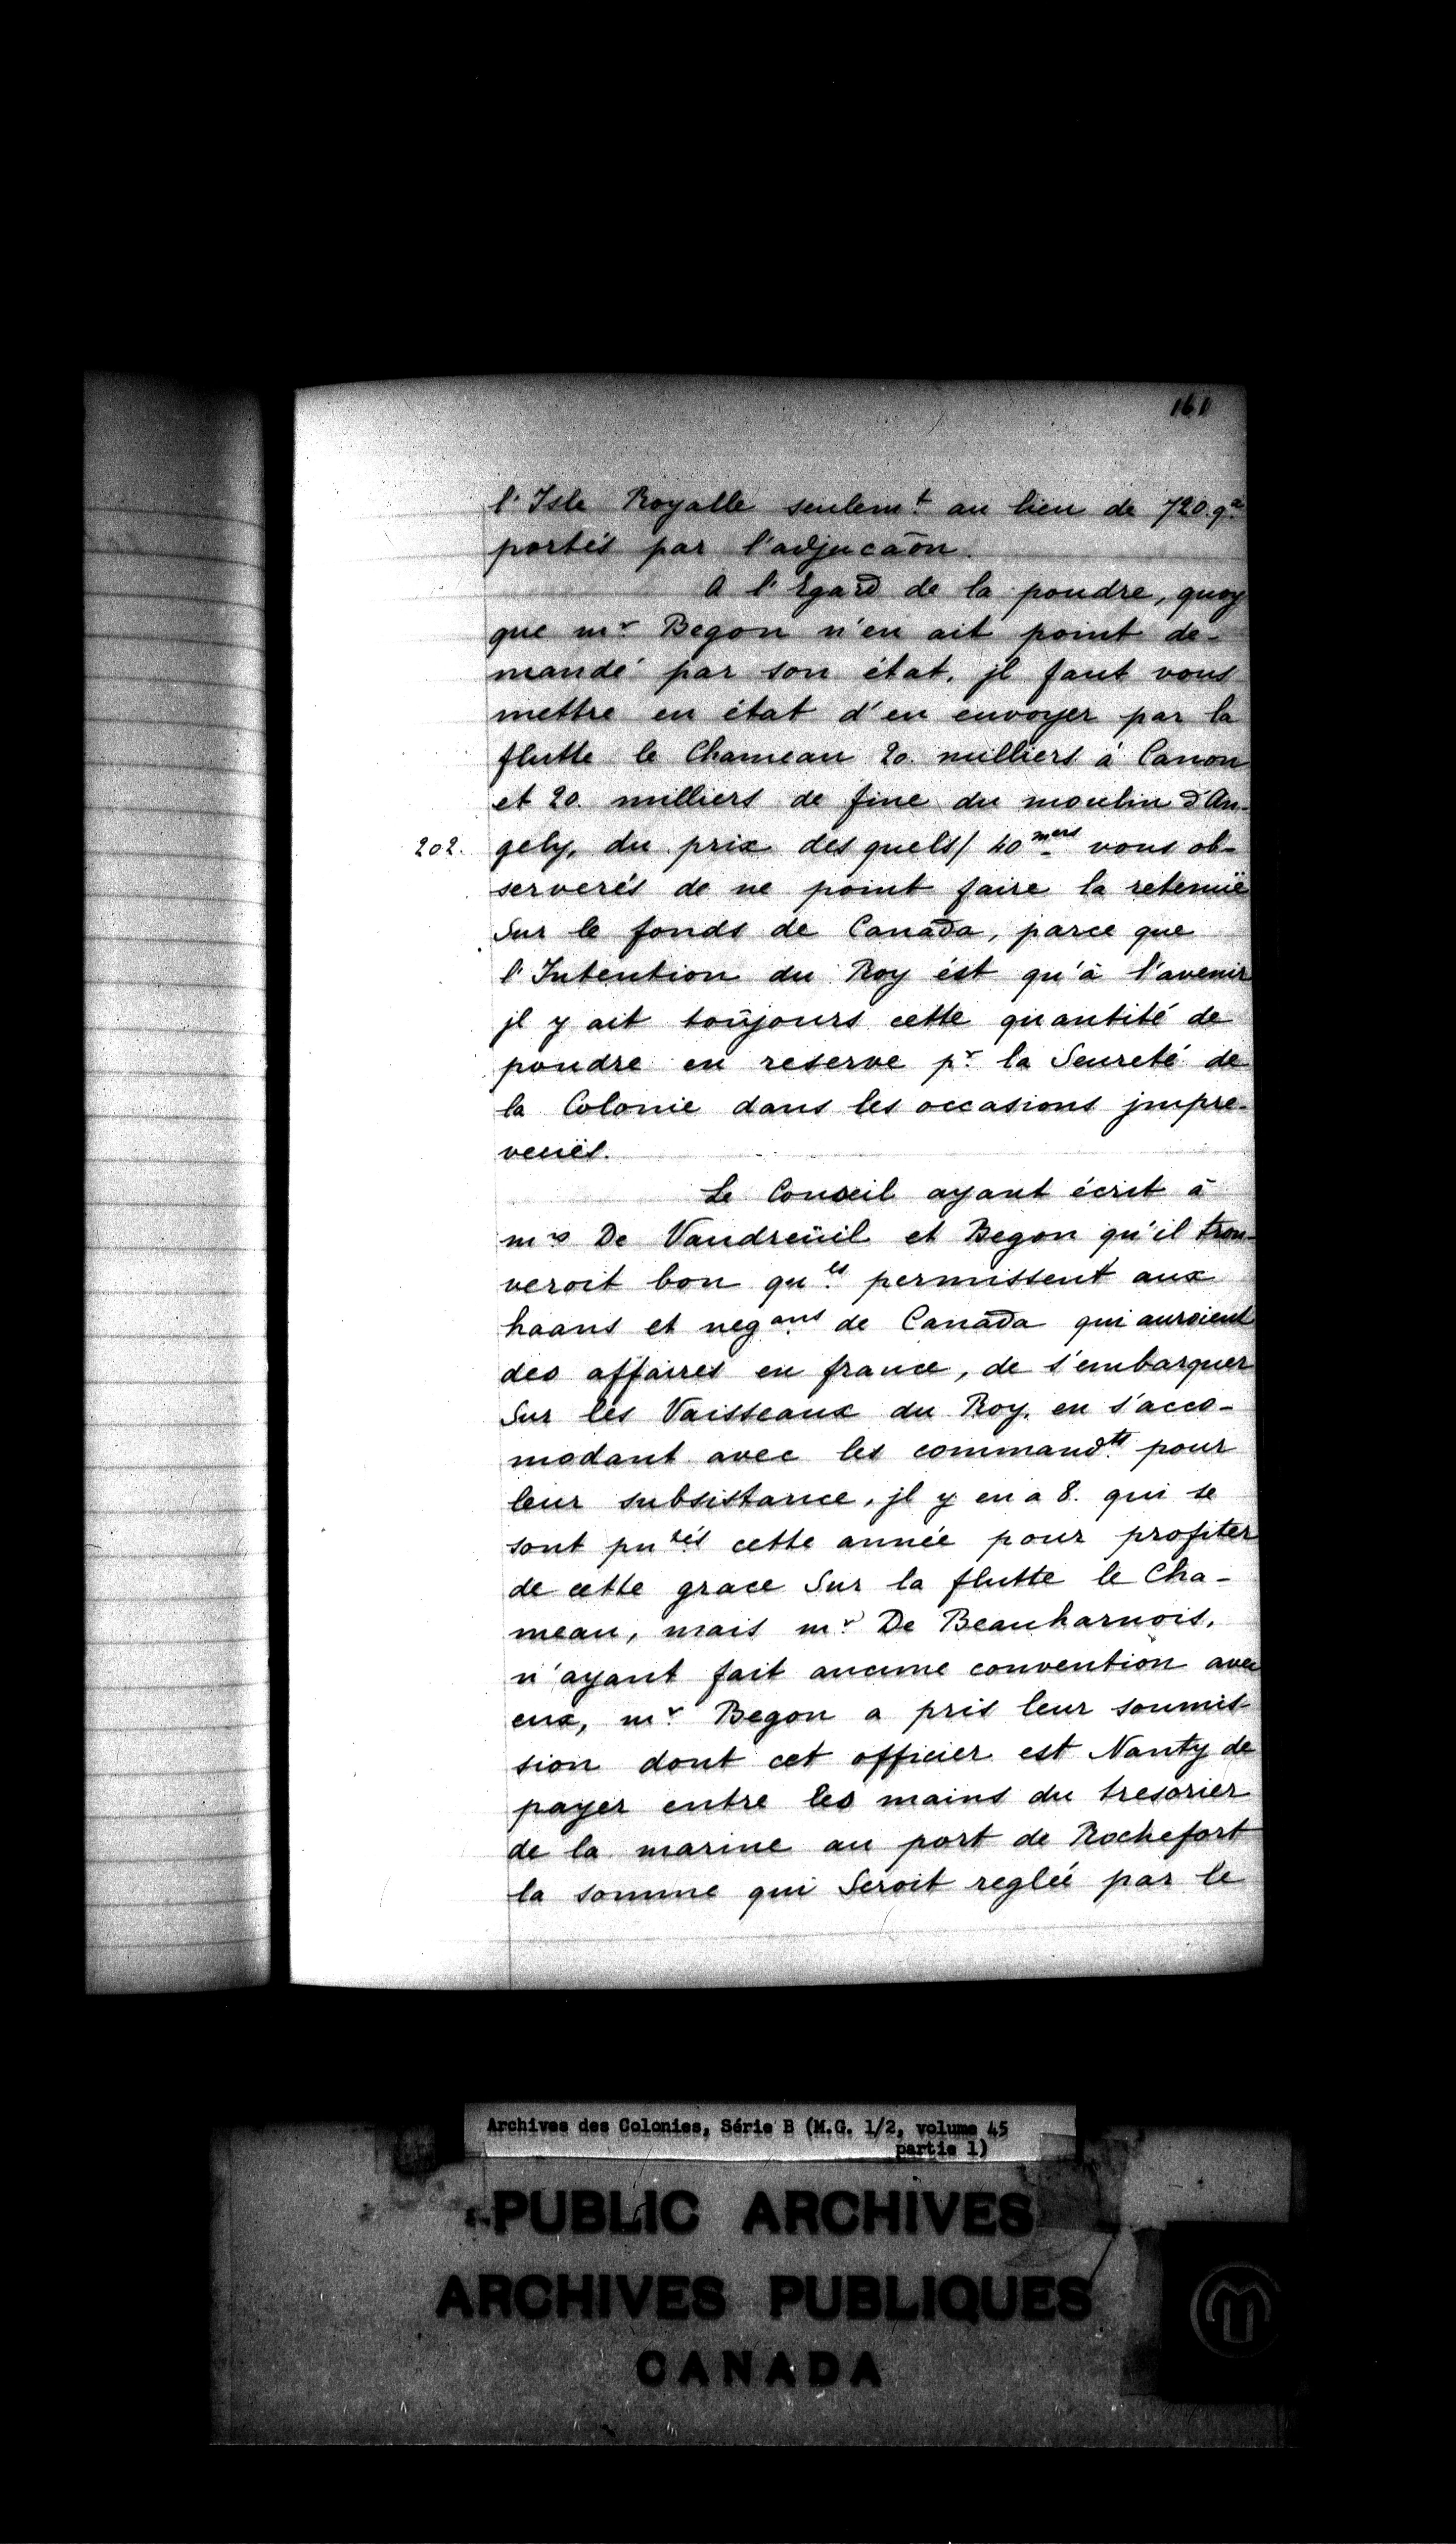 161
l'Isle Royalle seulem.t au lieu de 720. q.x
portés par l'adjucãon.
A l'Egard de la poudre, quoy
que m.r Begon n'en ait point de-
mandé par son état, jl faut vous
mettre en état d'en envoyer par la
flutte le Chameau 20. milliers à Canon
et 20. milliers de fine du moulin d'An-
202. gely, du prix des quels/ 40 mers vous ob-
serverés de ne point faire la retenuë
Sur le fonds de Canada, parce que
l'Intention du Roy ést qu'à l'avenir
jl y ait toûjours cette quantité de
poudre en reserve p.r la Seureté de
la Colonie dans les occasions jmpre-
veuës.
Le Conseil ayant écrit à
m.rs De Vaudreüil et Begon qu'il trou-
veroit bon qu.ls permissent aux
haans et neg.ans de Canada qui auroient
des affaires en france, de s'embarquer
Sur les Vaisseaux du Roy, en s'acco-
modant avec les command.ts pour
leur subsistance, jl y en a 8. qui se
sont pn.tés cette année pour profiter
de cette grace Sur la flutte le Cha-
meau, mais m.r De Beauharnois,
n'ayant fait aucune convention avec
eux, m.r Begon a pris leur soumis-
sion dont cet officier est Nanty de
payer entre les mains du tresorier
de la marine au port de Rochefort
la somme qui Seroit reglée par le
Archives des Colonies, Série B (M.G. 1/2, volume 45
partie 1)
PUBLIC ARCHIVES
ARCHIVES PUBLIQUES
CANADA